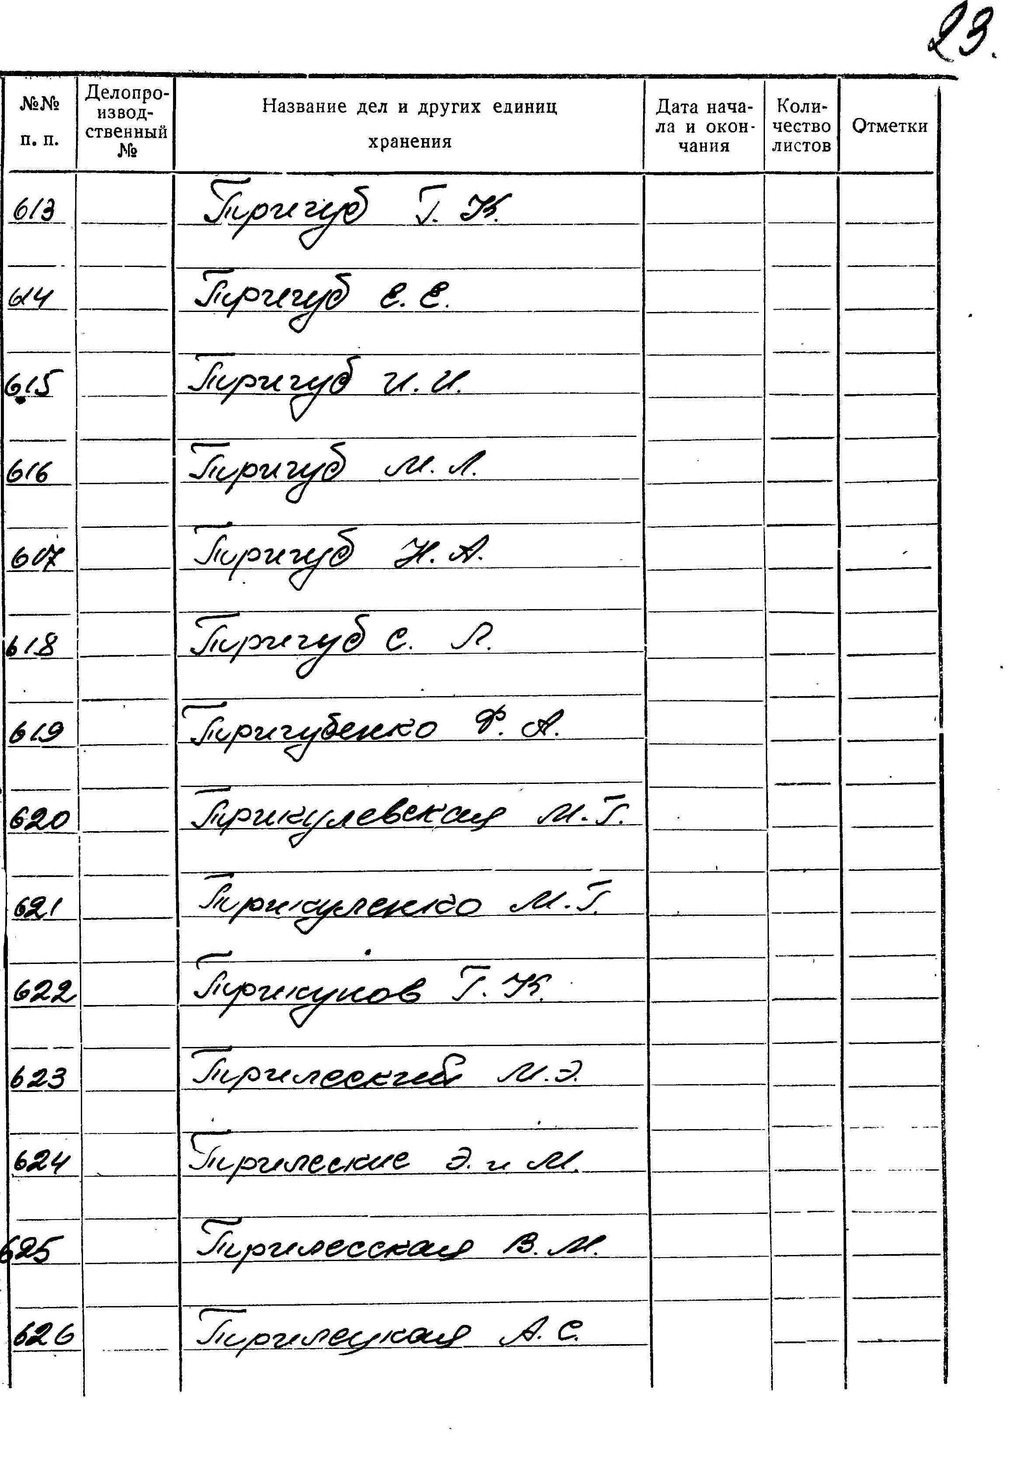 23.
№№ п. п. Делопроизводственный № Название дел и других единиц хранения Дата начала и окончания Количество листов Отметки
613 Пригуб Г. К.
614 Пригуб Е. Е.
615 Пригуб И. И.
616 Пригуб М. Л.
617 Пригуб Н. А.
618 Пригуб С. Л.
619 Пригубенко Ф. А.
620 Прикулевская М. Г.
621 Прикуленко М. Г.
622 Прикупов Г. К.
623 Прилеский М. Э.
624 Прилеские Э. и М.
625 Прилесская В. М.
626 Прилецкая А. С.